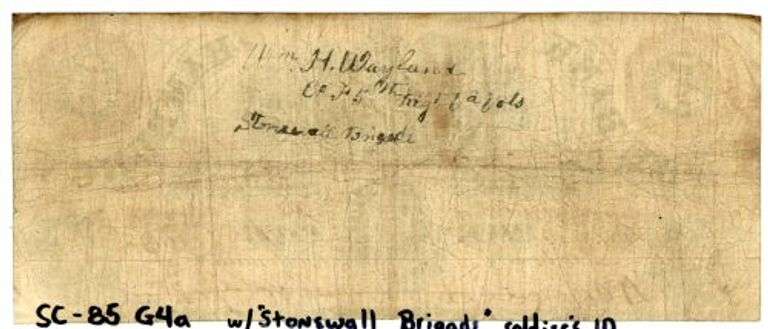 Wm. H. Wayland
Co. F 5th Regt Va Vols
Stonewall Brigade
SC-85 G4a w/"Stonewall Brigade" soldier's ID